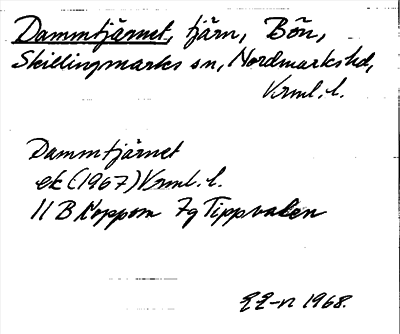 Dammtjärnet, tjärn, Bön,
Skillingmarks sn, Nordmarks hd,
Vrml. l.
Dammtjärnet
ek (1967) Vrml. l.
11 B Koppom 7g Tippvalen
1968.